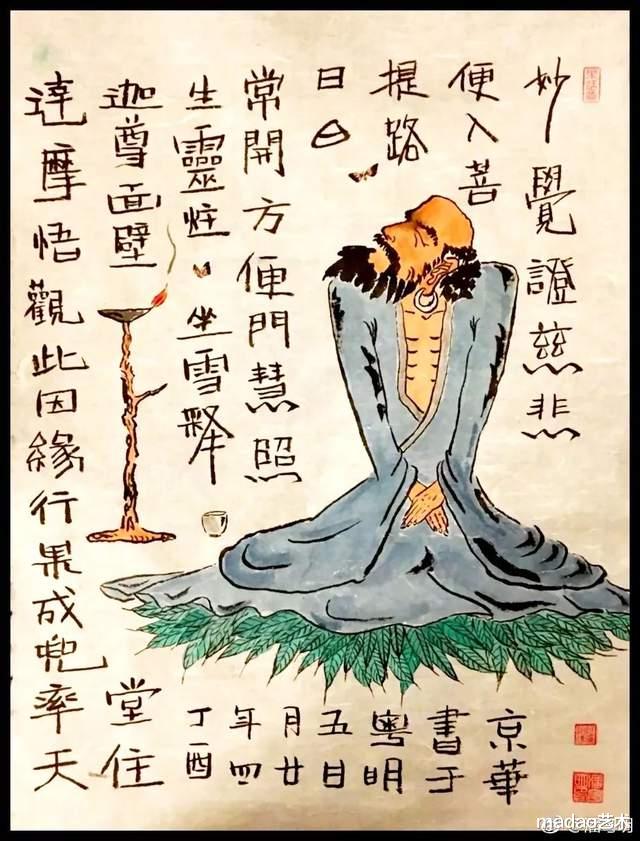 妙覺證慈悲
便入菩
提路
日
常開方便門慧照
生靈炷坐雪釋
迦尊面壁
達摩悟觀此因緣行果成兜率天
堂住
丁酉
年四
月廿
五日
粵明
書于
京華
madao艺术